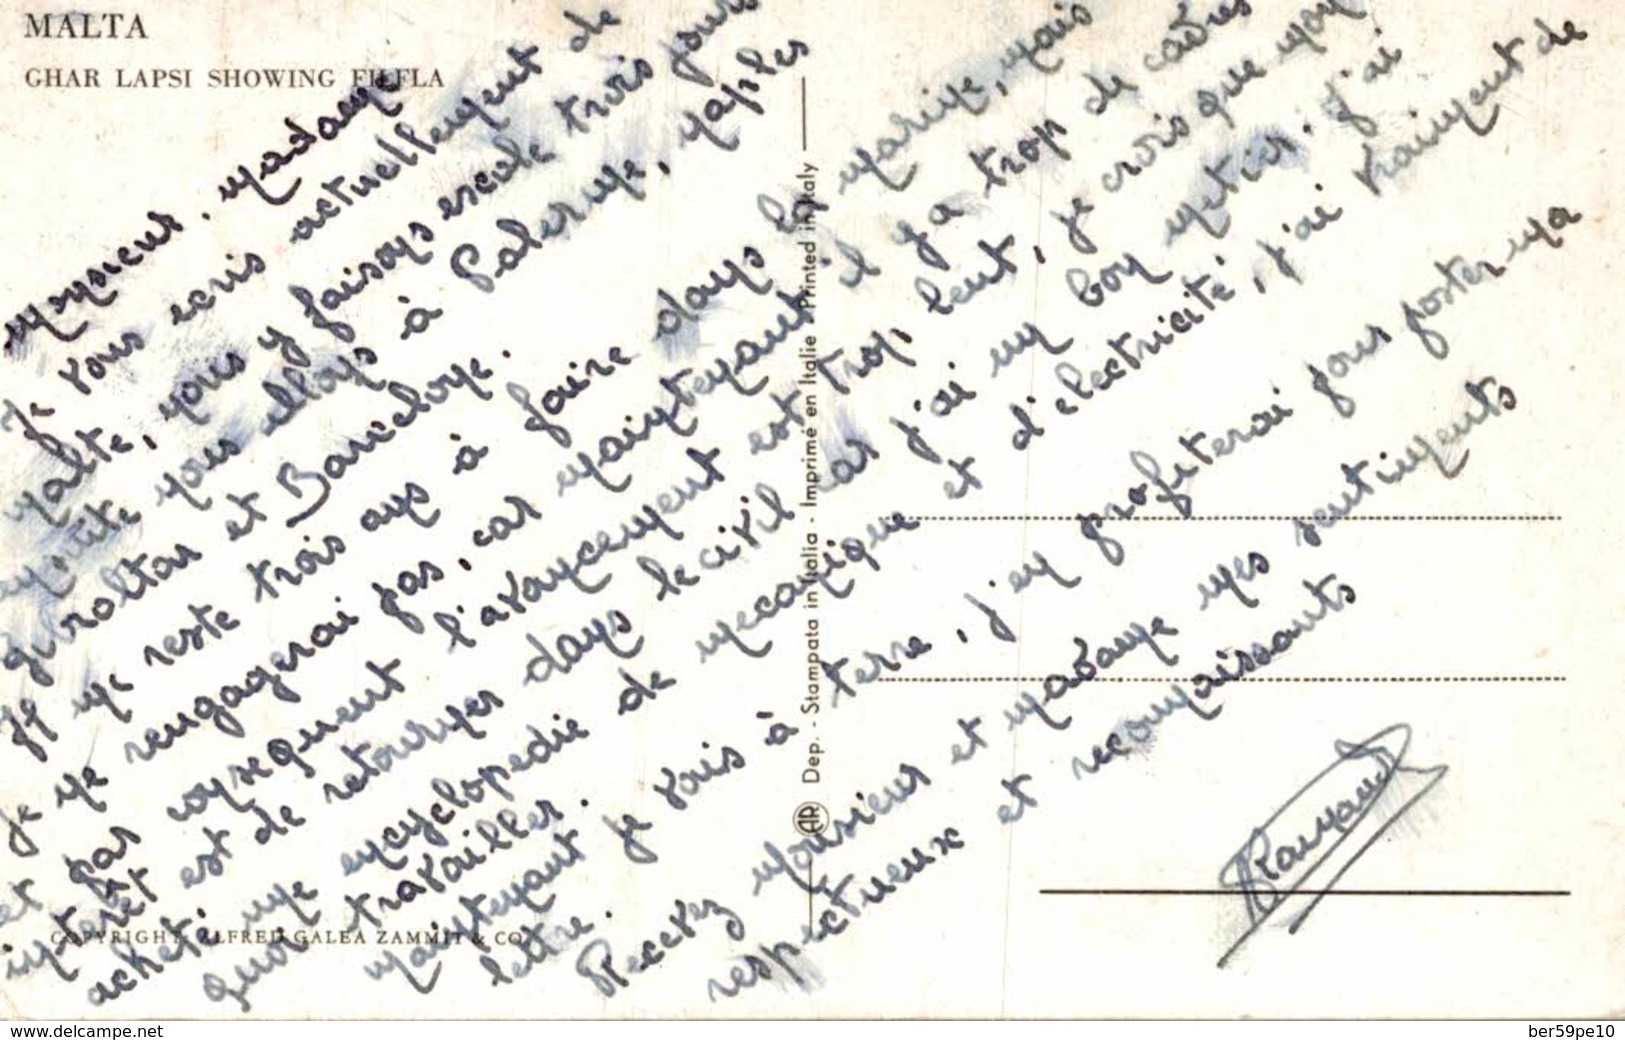 MALTA
GHAR LAPSI SHOWING FILFLA
Monsieur, Madame
Je vous ecris actuellement de
Malte, nous y faisons escale trois jours
ensuite nous allons à Palerme, Naples
Gibraltar et Barcelone.
Il me reste trois ans à faire dans la marine, mais
je me rengagerai pas, car maintenant il y a trop de cadres
et par consequent l'avancement est trop lent, je crois que mon
interêt est de retourner dans le civil car j'ai un bon metier. j'ai
acheté une encyclopedie de mecanique et d'electricité, j'ai vraiment de
quoi travailler.
Maintenant je vais à terre, j'en profiterai pour poster ma
lettre.
Recevez Monsieur et Madame mes sentiments
respectueux et reconnaissants
COPYRIGHT: ALFRED GALEA ZAMMIT & CO.
AR Dep. - Stampata in Italia - Imprimé en Italie - Printed in Italy
www.delcampe.net
ber59pe10